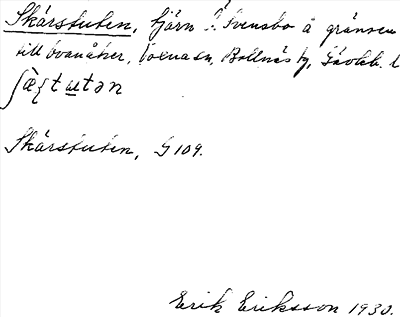 Skärstuten, tjärn i Svensbo å gränsen
till Ovanåker, Voxna sn, Bollnäs tg, Gävleb. l
ʃæ̀ʂtʉtən
Skärstuten, G 109.
Erik Eriksson 1930.